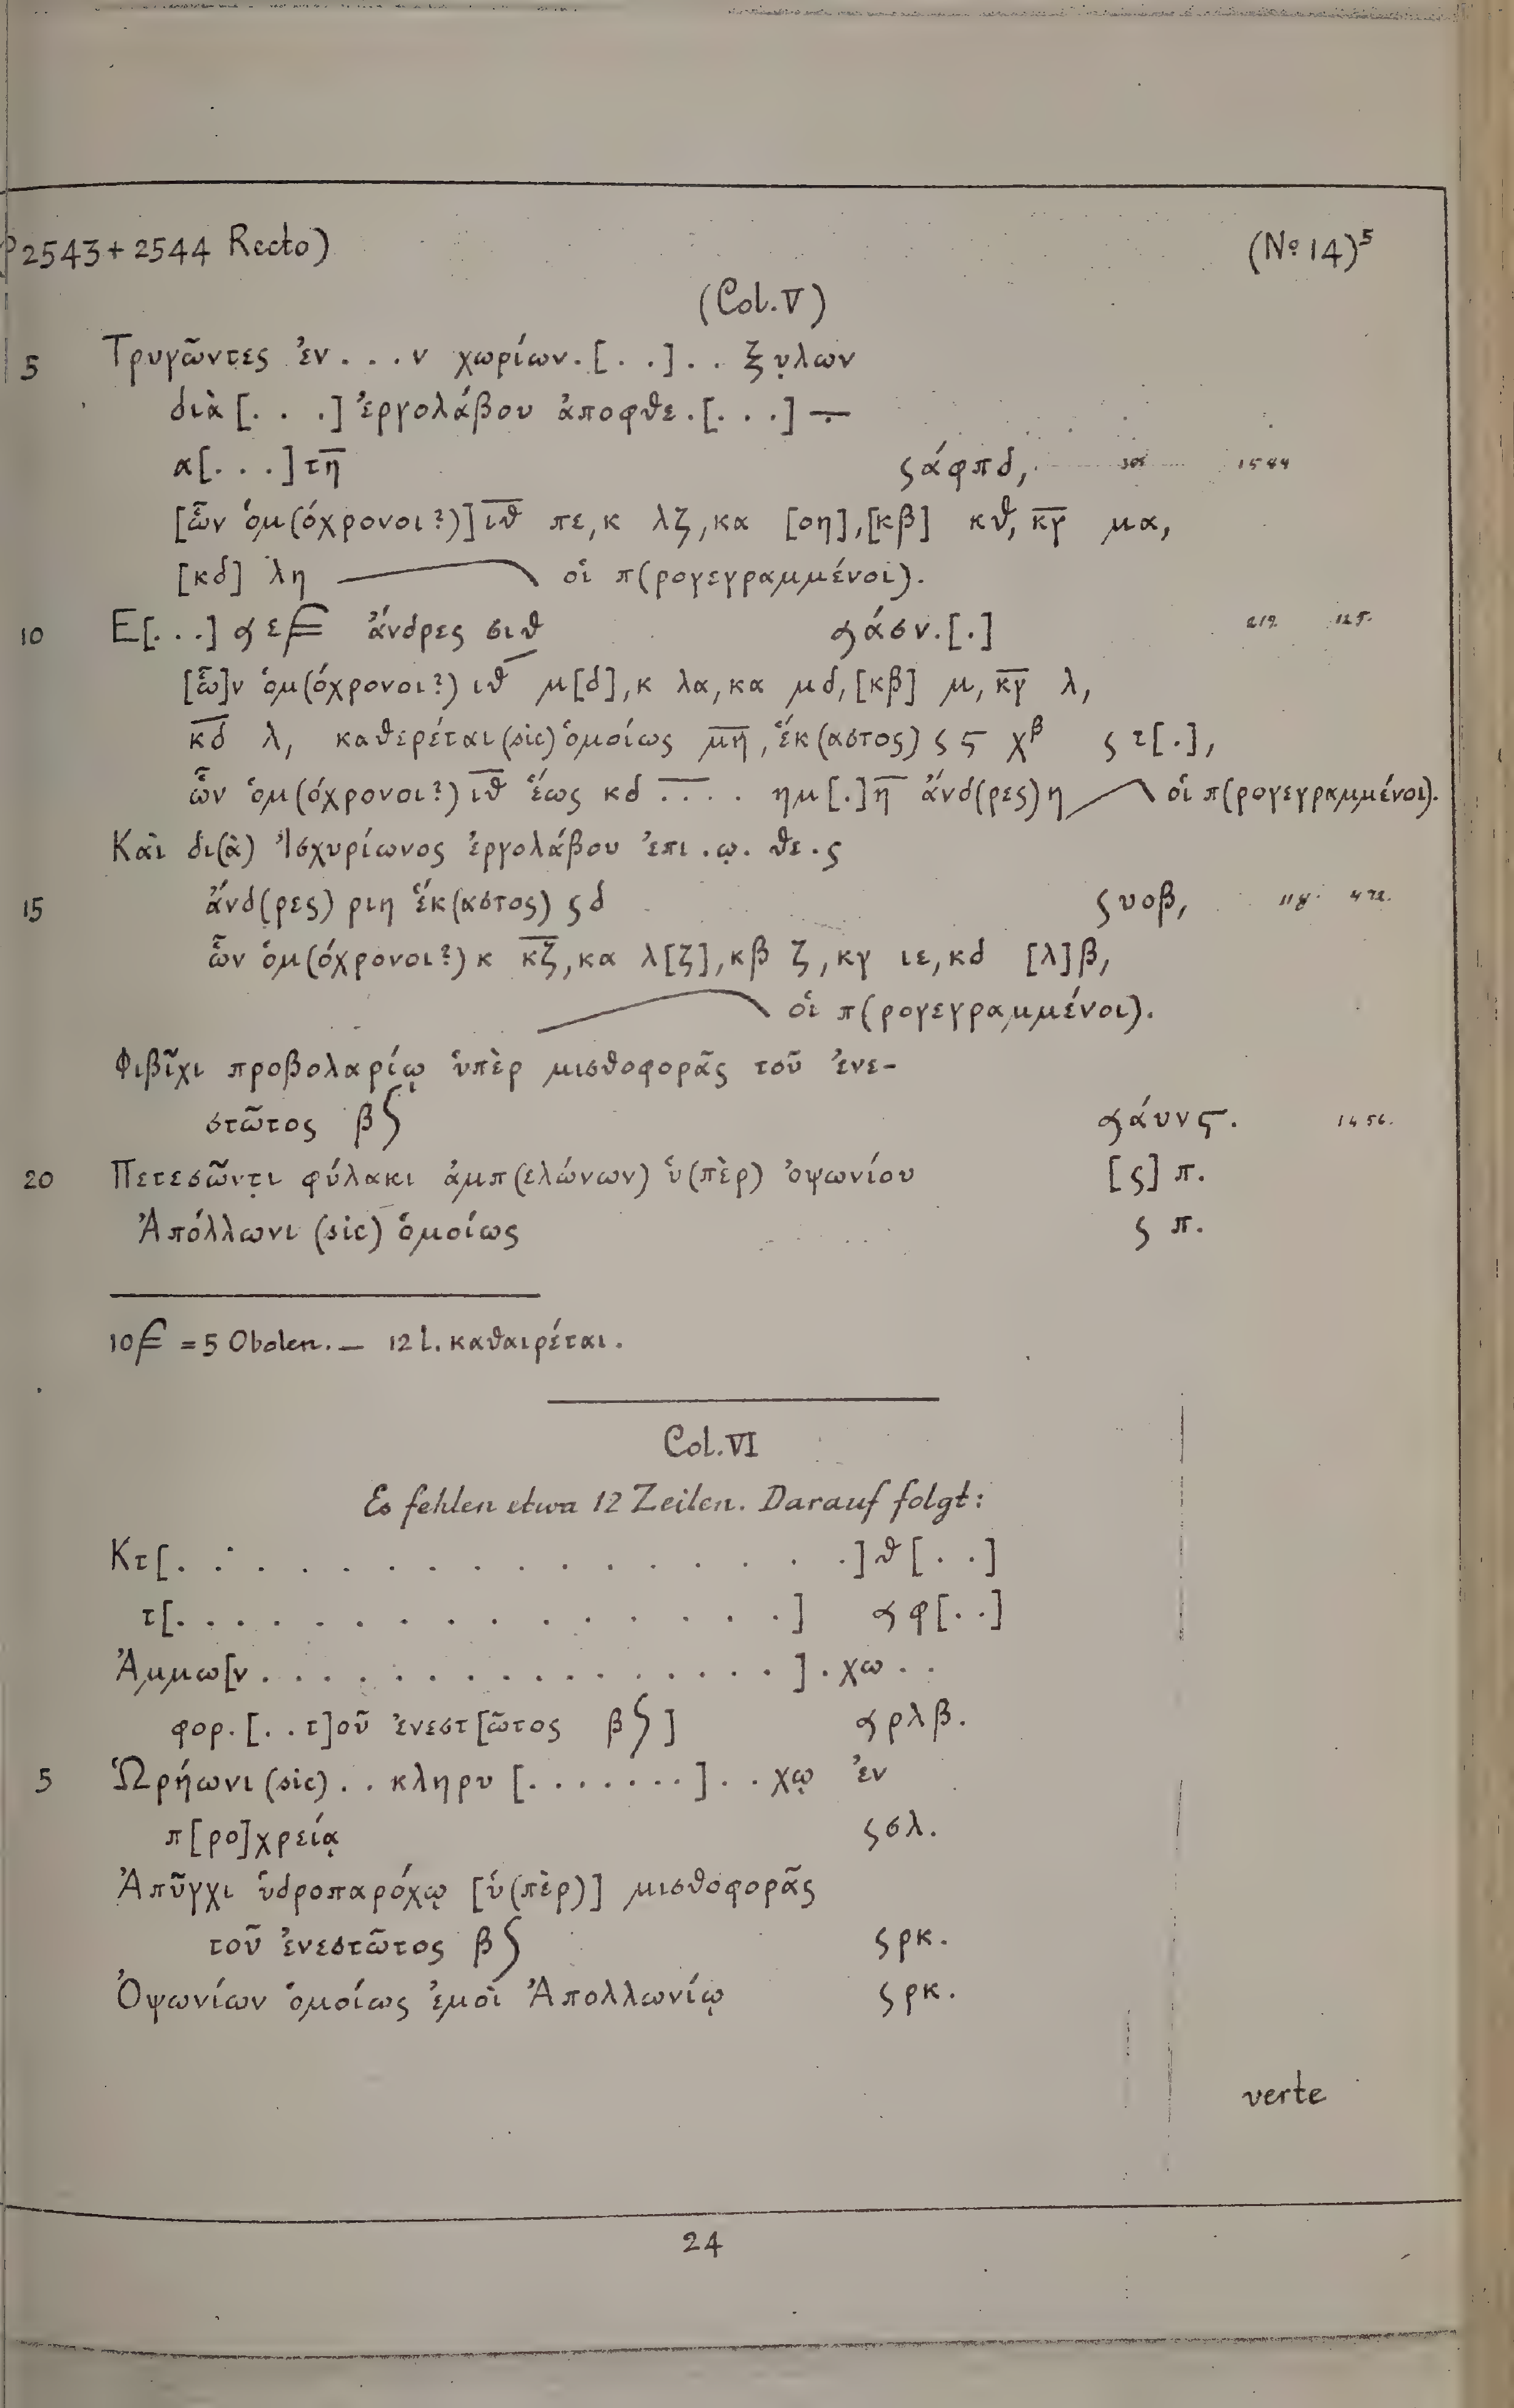 (P 2543 + 2544 Recto) (No 14)⁵
(Col. V)
5 Τρυγῶντες ἐν . . . ν χωρίων . [ . . ] . . ξυ̣λων
διὰ [ . . . ] ἐργολάβου ἀποφθε . [ . . . ] —
α[ . . . ] τη̅ ϛ ά φ π δ, 308 1544
[ὧν ὁμ(όχρονοι?)] ι̅θ̅ πε, κ λζ, κα [οη], [κβ] κθ, κ̅γ̅ μα,
[κδ] λη οἱ π(ρογεγραμμένοι).
10 Ε[ . . . ] ε ἄνδρες σιθ ά σ ν . [ . ] 219 125.
[ὧ]ν ὁμ(όχρονοι?) ιθ̅ μ[δ], κ λα, κα μδ, [κβ] μ, κ̅γ̅ λ,
κ̅δ̅ λ, καθερέται (sic) ὁμοίως μ̅η̅, ἕκ(αστος) ϛ ϛ χᵝ ϛ τ[ . ],
ὧν ὁμ(όχρονοι?) ι̅θ̅ ἕως κδ . . . . ημ[ . ]η̅ ἄνδ(ρες) η οἱ π(ρογεγραμμένοι).
Καὶ δι(ὰ) Ἰσχυρίωνος ἐργολάβου ἐπι . ω̣ . θε . ς
15 ἄνδ(ρες) ριη ἕκ(αστος) ϛ δ ϛ υοβ, 118 472.
ὧν ὁμ(όχρονοι?) κ κ̅ζ̅, κα λ[ζ], κβ ζ, κγ ιε, κδ [λ]β,
οἱ π(ρογεγραμμένοι).
Φιβῖχι προβολαρίῳ ὑπὲρ μισθοφορᾶς τοῦ ἐνε-
στῶτος β ʃ ά υ ν ϛ. 1456.
20 Πετεσῶντ̣ι φύλακι ἀμπ(ελώνων) ὑ(πὲρ) ὀψωνίου [ϛ] π.
Ἀπόλλωνι (sic) ὁμοίως ϛ π.
10 = 5 Obolen. — 12 l. καθαιρέται.
Col. VI
Es fehlen etwa 12 Zeilen. Darauf folgt:
Κτ[ . . . . . . . . . . . . . . . . . ] θ [ . . ]
τ[ . . . . . . . . . . . . . . . ] φ[ . . ]
Ἀμμω[ν . . . . . . . . . . . . . . . . ] . χω . .
φορ . [ . . τ]οῦ ἐνεστ[ῶτος β ʃ ] ρλβ.
5 Ὡρήωνι (sic) . . κληρυ [ . . . . . . . ] . . χῳ ἐν
π[ρο]χρείᾳ ϛ σλ.
Ἀπῦγχι ὑδροπαρόχῳ [ὑ(πὲρ)] μισθοφορᾶς
τοῦ ἐνεστῶτος β ʃ ϛ ρκ.
Ὀψωνίων ὁμοίως ἐμοὶ Ἀπολλωνίῳ ϛ ρκ.
verte
24